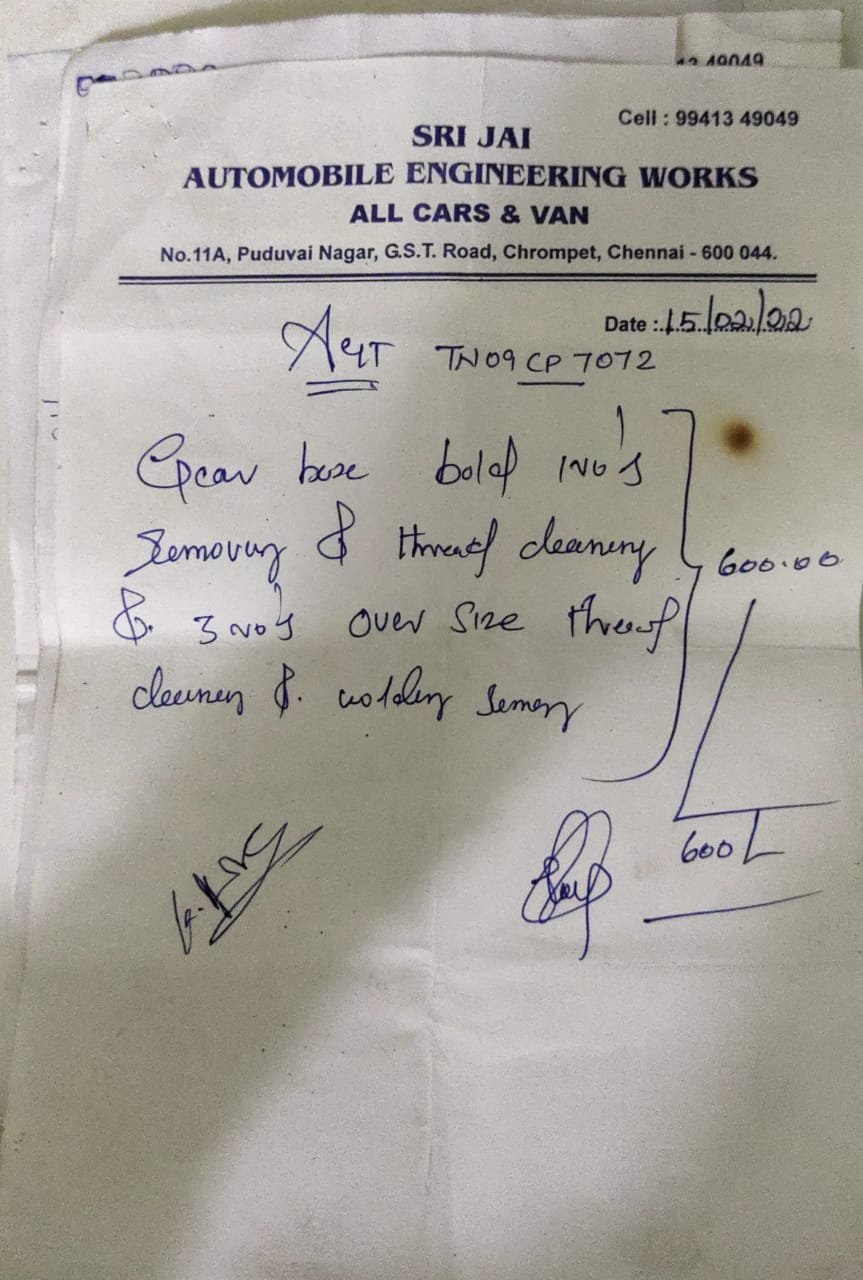 49049
Cell : 99413 49049
SRI JAI
AUTOMOBILE ENGINEERING WORKS
ALL CARS & VAN
No.11A, Puduvai Nagar, G.S.T. Road, Chrompet, Chennai - 600 044.
Date : 15/02/22
TN09 CP 7072
Gear box bolt 1 No's
Removing & thread cleaning 600.00
& 3 No's over size thread
cleaning & welding
600/-